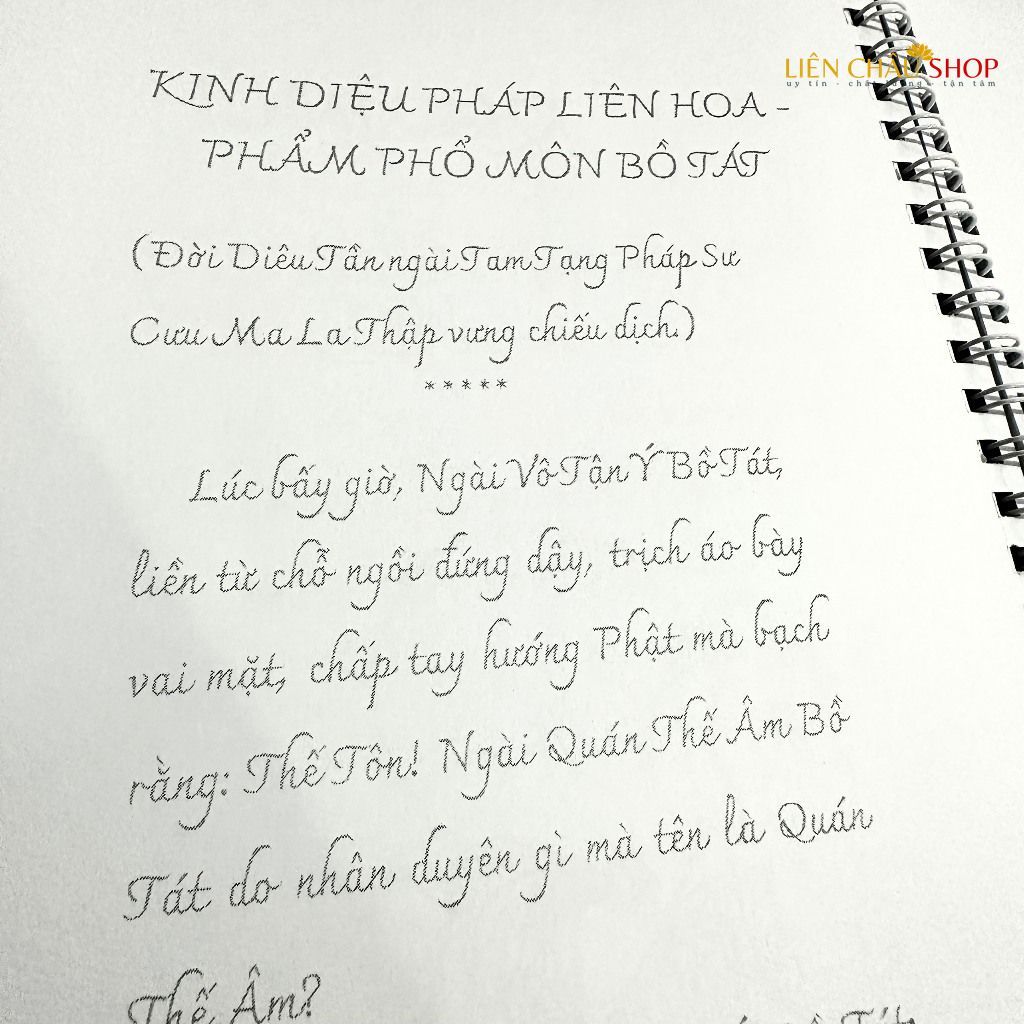 LIÊN CHÂU SHOP
uy tín - chất lượng - tận tâm
KINH DIỆU PHÁP LIÊN HOA -
PHẨM PHỔ MÔN BỒ TÁT
(Đời Diêu Tần ngài Tam Tạng Pháp Sư
Cưu Ma La Thập vưng chiếu dịch.)
*****
Lúc bấy giờ, Ngài Vô Tận Ý Bồ Tát,
liền từ chỗ ngồi đứng dậy, trịch áo bày
vai mặt, chấp tay hướng Phật mà bạch
rằng: Thế Tôn! Ngài Quán Thế Âm Bồ
Tát do nhân duyên gì mà tên là Quán
Thế Âm?